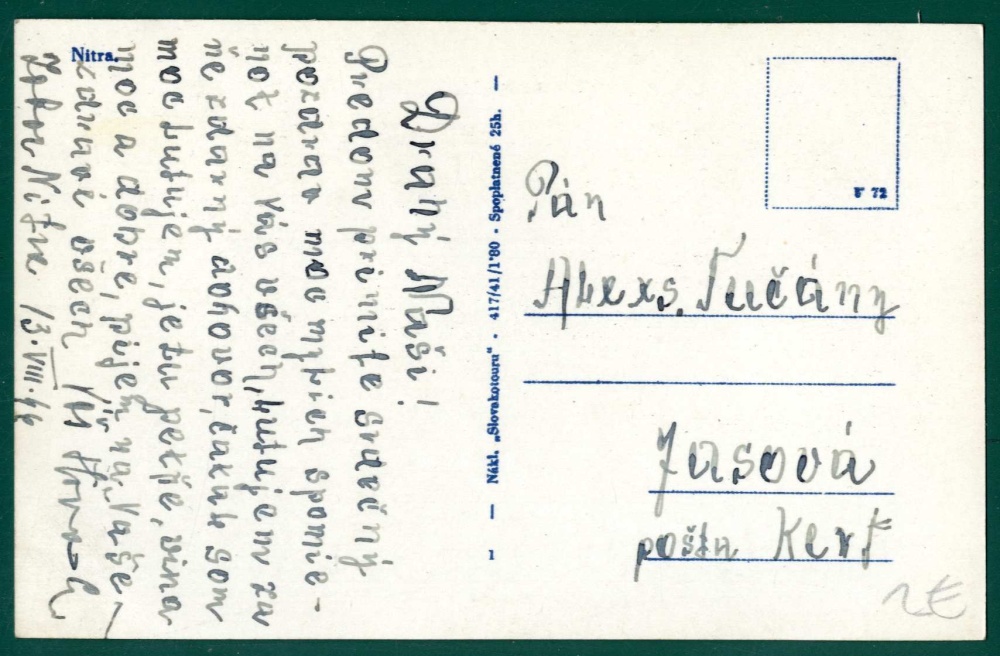 Nitra.
Drahý Naši!
Predom prijmite srdečný
pozdrav moc milich spomie-
not na Vás ošech, lutujem za
ne zdarný dohovor, čakal som
moc lutujem, je tu petše, vina
moc a dobre, pijem na Vaše
zdravé ošech Váš
Nitra 13.VIII.44
1 — Nákl. „Slovakotouru" · 417/41/1'80 · Spoplatnené 25h. —
V 72
Pán
Alexs. Tučány
Jasová
pošta Kert
2€